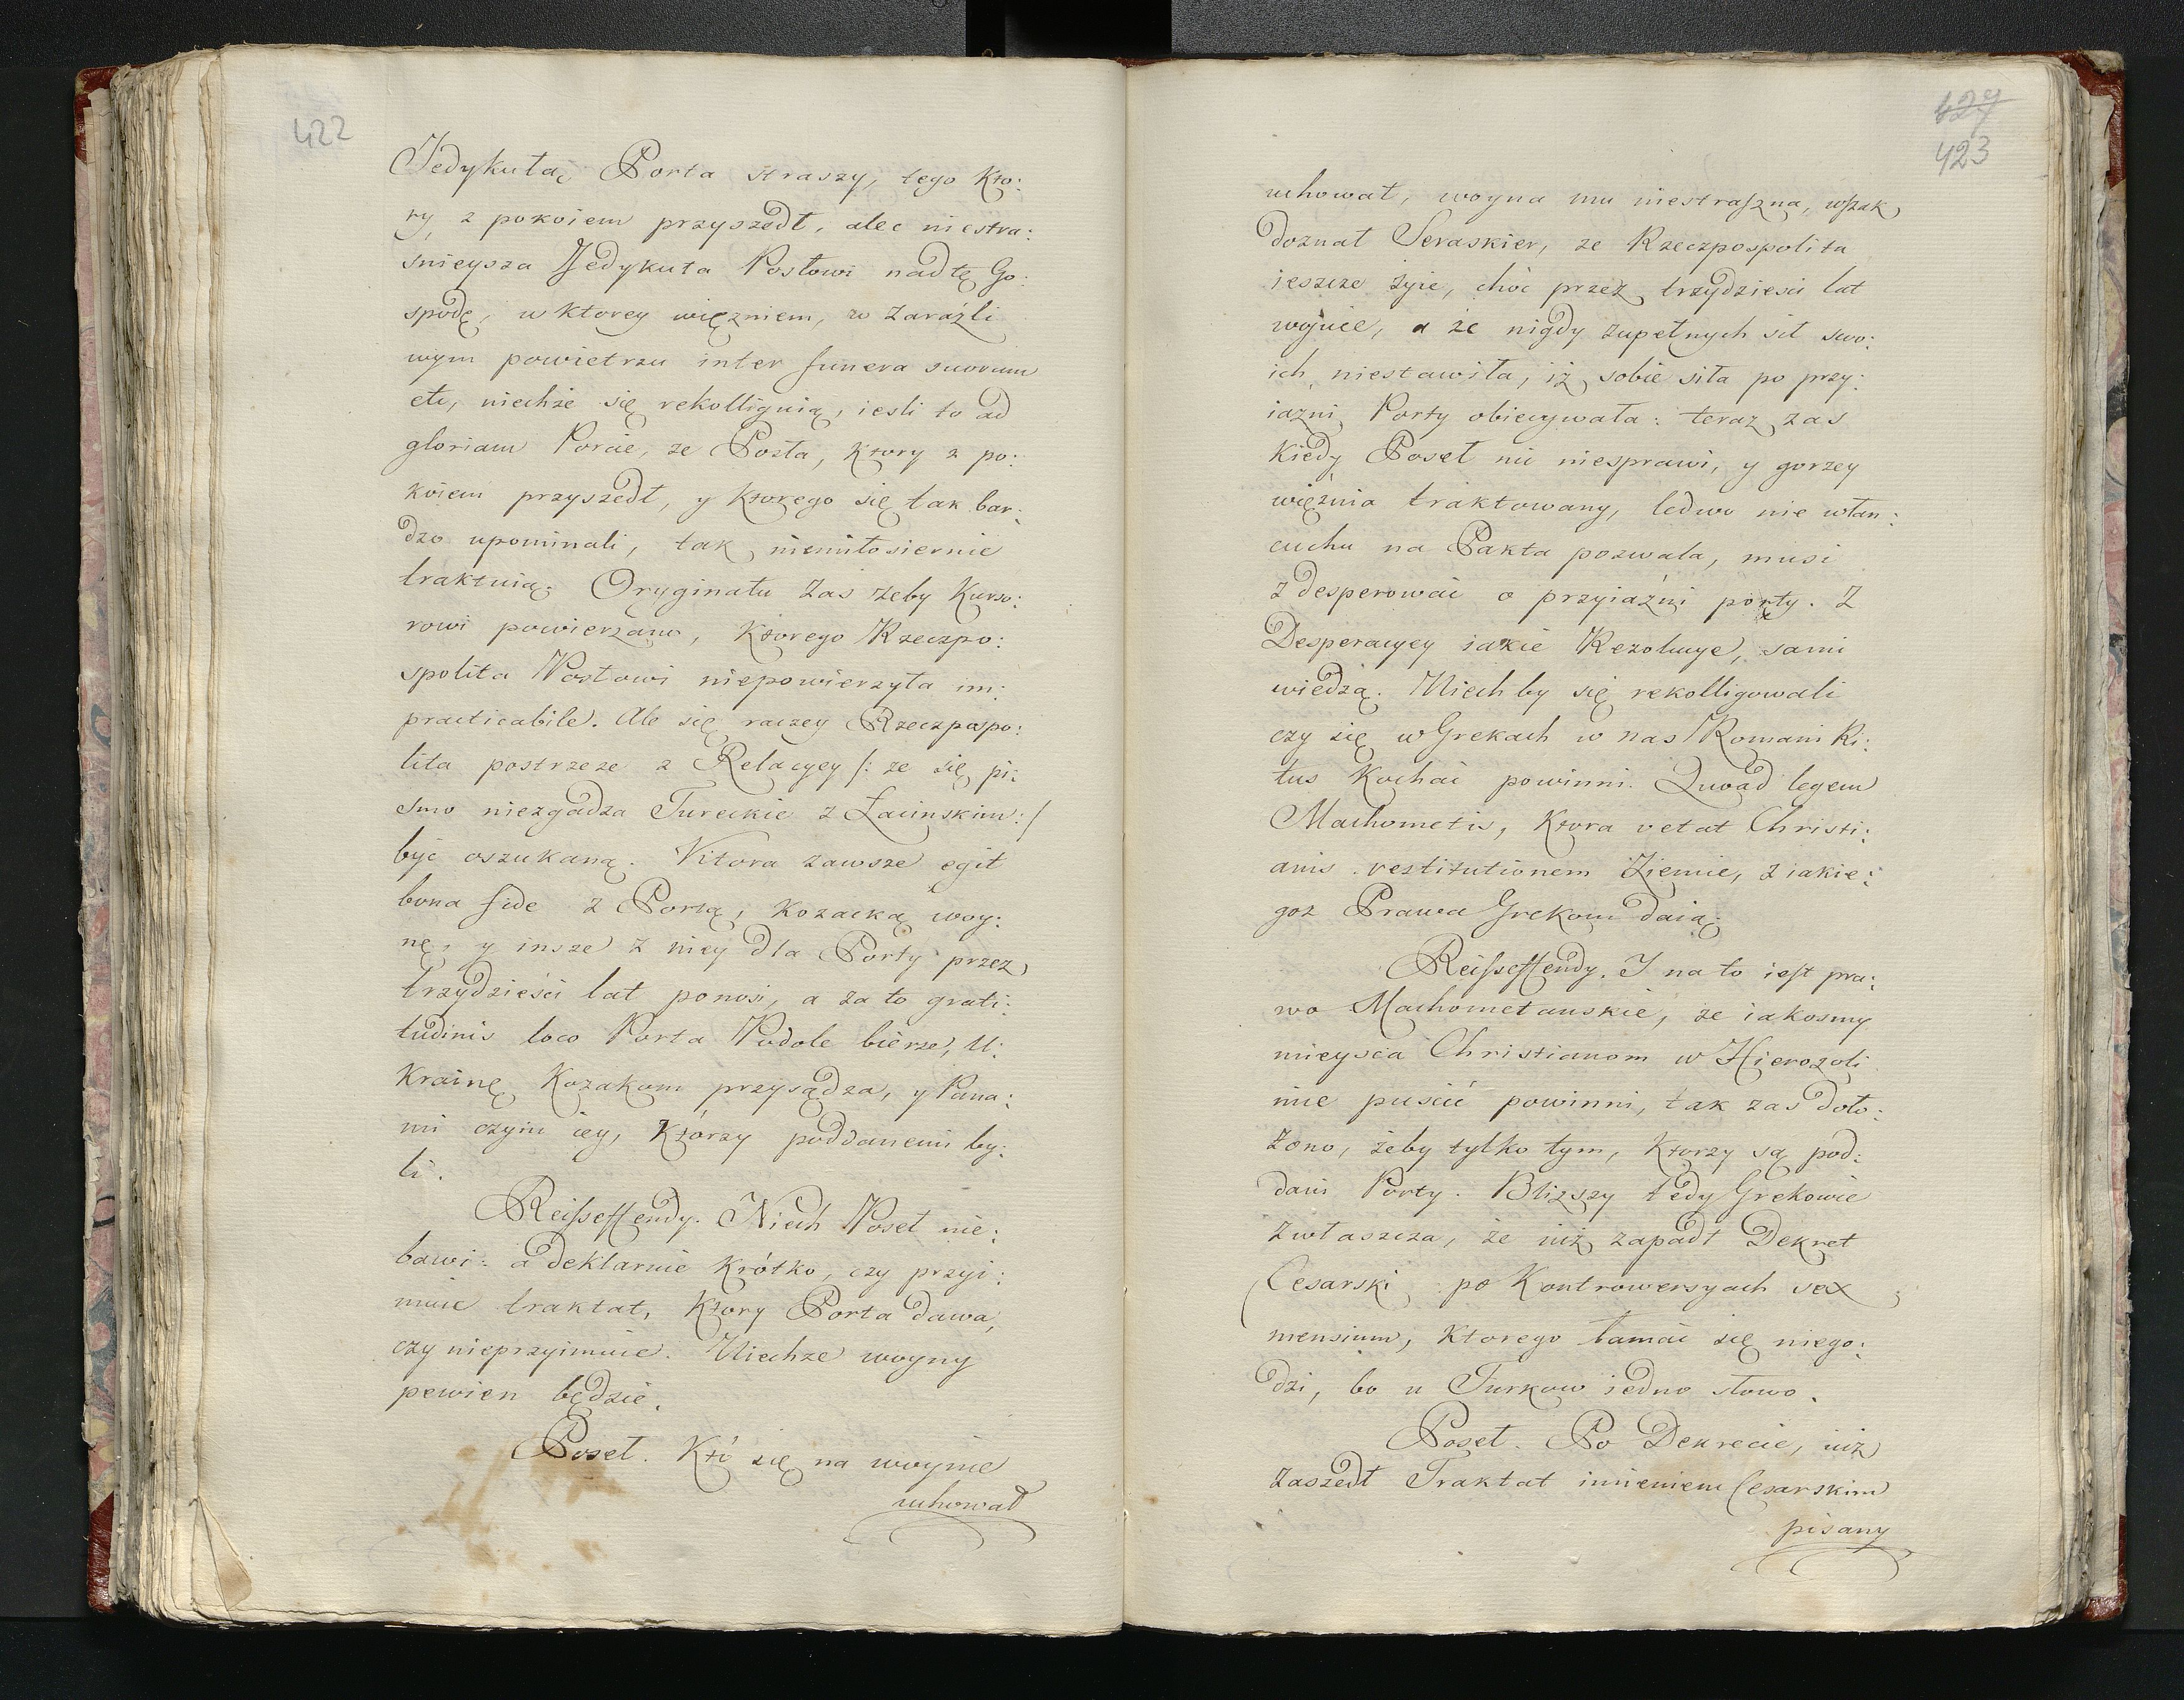 422
Jedykułą Porta straszy, tego kto:
ry z pokoiem przyszedł, alec niestra:
snieysza Jedykuła Posłowi nad tę Go:
spodę, w ktorey więzniem, w Zaraźli
wym powietrzu inter funera suorum
etc, niechże się rekolliguią, iesli to ad
gloriam Porcie, ze Posła, ktory z po:
koiem przyszedł, y ktorego się tak bar:
dzo upominali, tak niemiłosiernie
traktuią. Oryginału zas żeby Kurso:
rowi powierzano, ktorego Rzeczpo:
spolita Posłowi niepowierzyła im:
practicabile. Ale się raczey Rzeczpospo:
lita postrzeze z Relacyey /: ze się pi:
smo niezgadza Tureckie z Łacinskim :/
być oszukaną. Ktora zawsze egit
bona fide z Portą, kozacką woy:
nę, y insze z niey dla Porty przez
trzydzieści lat ponosi, a za to grati:
tudinis loco Porta Podole bierze, U:
krainę Kozakom przysądza, y Pana:
mi czyni iey, którzy poddanemi by:
li.
Reisseffendy. Niech Poseł nie:
bawi: a deklaruie krótko, czy przyi:
muie traktat, ktory Porta dawa,
czy nieprzyimuie. Niechze woyny
pewien będzie.
Poseł. Kto się na woynie
uchował
427
423
uchował, woyna mu niestraszna, wszak
doznał Seraskier, ze Rzeczpospolita
ieszcze żyie, choć przez trzydziesci lat
woiuie, a że nigdy zupełnych sił swo:
ich niestawiła, iż sobie siła po przy:
iazni Porty obiecywała: teraz zas
kiedy Poseł nic niesprawi, y gorzey
więźnia traktowany, ledwo nie w łan:
cuchu na Pakta pozwala, musi
zdesperować o przyiaźni porty. Z
Desperacyey iakie Rezolucye, sami
wiedzą. Niechby się rekolligowali
czy się w Grekach w nas Romani Ri:
tus kochać powinni. Quoad legem
Machometis, ktora vetat Christi:
anis restitutionem Ziemie, z iakie:
goz Prawa Grekom daią.
Reisseffendy. I na to iest pra:
wo Machometanskie, ze iakosmy
mieysca Christianom w Hierozoli
mie puscić powinni, tak zas doło:
żono, żeby tylko tym, ktorzy są pod:
dani Porty. Blizszy tedy Grekowie
zwłaszcza, że iuż zapadł Dekret
Cesarski po Kontrowersyach sex
mensium, ktorego łamać się niego:
dzi, bo u Turkow iedno słowo.
Poseł. Po Dekrecie, iuż
zaszedł Traktat imieniem Cesarskim
pisany